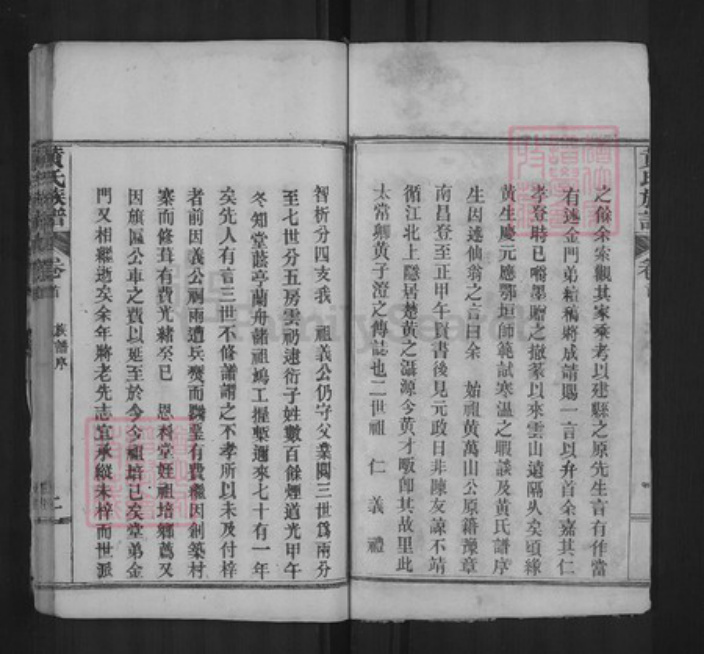 之餘余索觀其家乘考以建縣之原先生言有作當
有述金門弟稿將成請賜一言以弁首余嘉其仁
孝登時已嚼墨贈之撤篆以來雲山遠隔久矣頃緣
黃生慶元應鄂垣師範試寒溫之暇談及黃氏譜序
生因述仙翁之言曰余 始祖黃萬山公原籍豫章
南昌登至正甲午賢書後見元政日非陳友諒不靖
循江北上隱居楚黃之灄源今黃才畈卽其故里此
太常卿黃子澄之傳誌也二世祖 仁 義 禮
智析分四支我 祖義公仍守父業閱三世爲兩分
至七世分五房雲礽逮衍子姓數百餘煙道光甲午
冬知堂蔭亭蘭舟諸祖鳩工握槧邇來七十有一年
矣先人有言三世不修譜謂之不孝所以未及付梓
者前因義公祠兩遭兵燹而興墾有費繼因創築村
寨而修葺有費光緒癸巳 恩科堂姪祖培鄉薦又
因旗匾公車之費以延至於今今祖培已矣堂弟金
門又相繼逝矣余年將老先志宜承縱未梓而世派
黃氏族譜 卷首 族譜序
黃氏族譜
卷首
FamilySearch